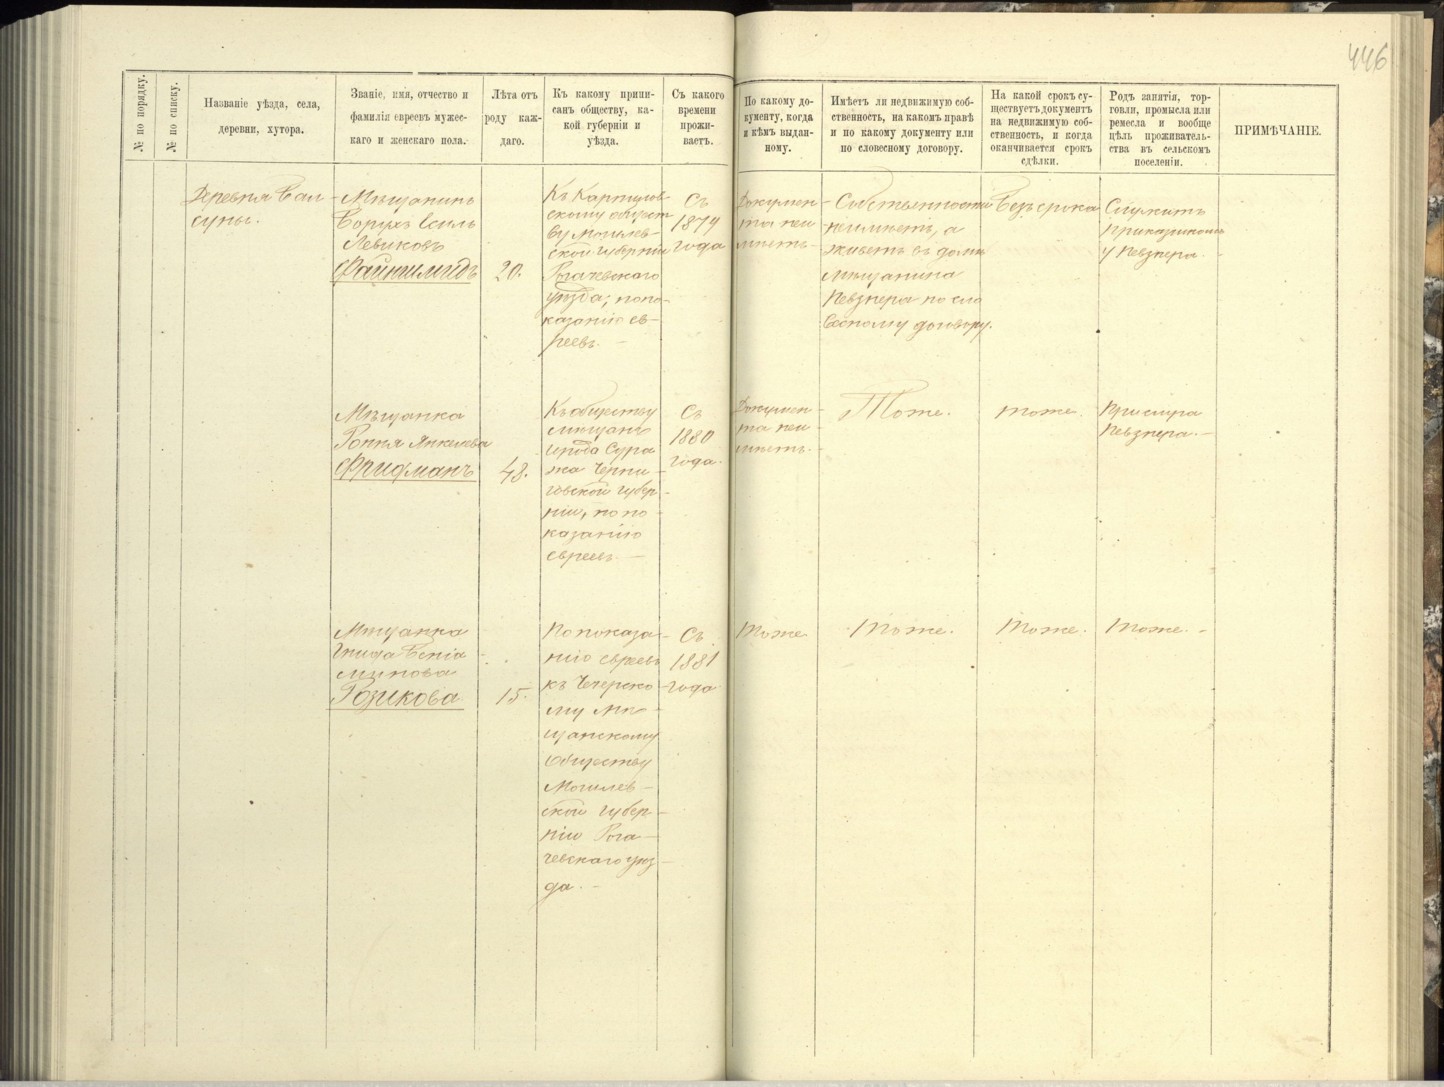 446
№ по порядку.
№ по списку.
Названіе уѣзда, села,
деревни, хутора.
Званіе, имя, отчество и
фамилія евреевъ мужес-
каго и женскаго пола.
Лѣта отъ
роду каж-
даго.
Къ какому припи-
санъ обществу, ка-
кой губерніи и
уѣзда.
Съ какого
времени
прожи-
ваетъ.
По какому до-
кументу, когда
и кѣмъ выдан-
ному.
Имѣетъ ли недвижимую соб-
ственность, на какомъ правѣ
и по какому документу или
по словесному договору.
На какой срокъ су-
ществуетъ документъ
на недвижимую соб-
ственность, и когда
оканчивается срокъ
сдѣлки.
Родъ занятія, тор-
говли, промысла или
ремесла и вообще
цѣль проживатель-
ства въ сельскомъ
поселеніи.
ПРИМѢЧАНІЕ.
Деревня
суны.
Мѣщанинъ
Борухъ
Левиковъ
Файншмидъ
20.
Къ
скому общест
ву Могилев-
ской губерніи
Рогачевскаго
уѣзда, по по-
казанію ев-
реевъ. —
Съ
1879
года
Докумен-
та не и
мѣетъ.
Собственности
не имѣетъ, а
живетъ въ домѣ
мѣщанина
Певзнера по сло
весному договору.
Безъ срока
Служитъ
прикащикомъ
у Певзнера.
Мѣщанка
Янкелева
Фридманъ
48.
Къ обществу
мѣщанъ
города Сура
жа Черни-
говской губер-
ніи, по по-
казанію
евреевъ. —
Съ
1880
года.
Докумен-
та не и
мѣетъ.
Тоже.
тоже.
Певзнера. —
Мѣщанка
Веніа
минова
Розикова
15.
По показа-
нію евреевъ
къ Чечерско-
му мѣ-
щанскому
обществу
Могилев-
ской губер-
ніи Рога-
чевскаго уѣз-
да. —
Съ
1881
года
Тоже
Тоже.
Тоже.
Тоже. —